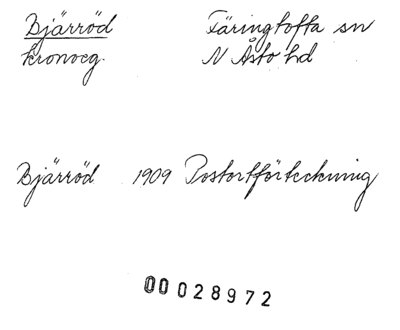 Bjärröd Färingtofta sn
kronoeg. N Åsbo hd
Bjärröd 1909 Postortförteckning
00 028972